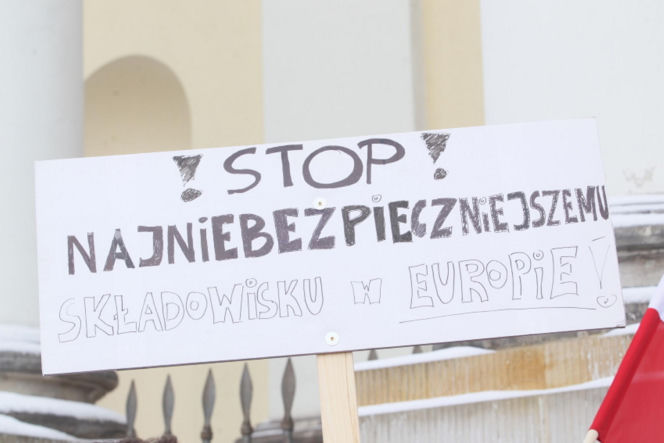 ! STOP !
NAJNIEBEZPIECZNIEJSZEMU
SKŁADOWISKU W EUROPIE!